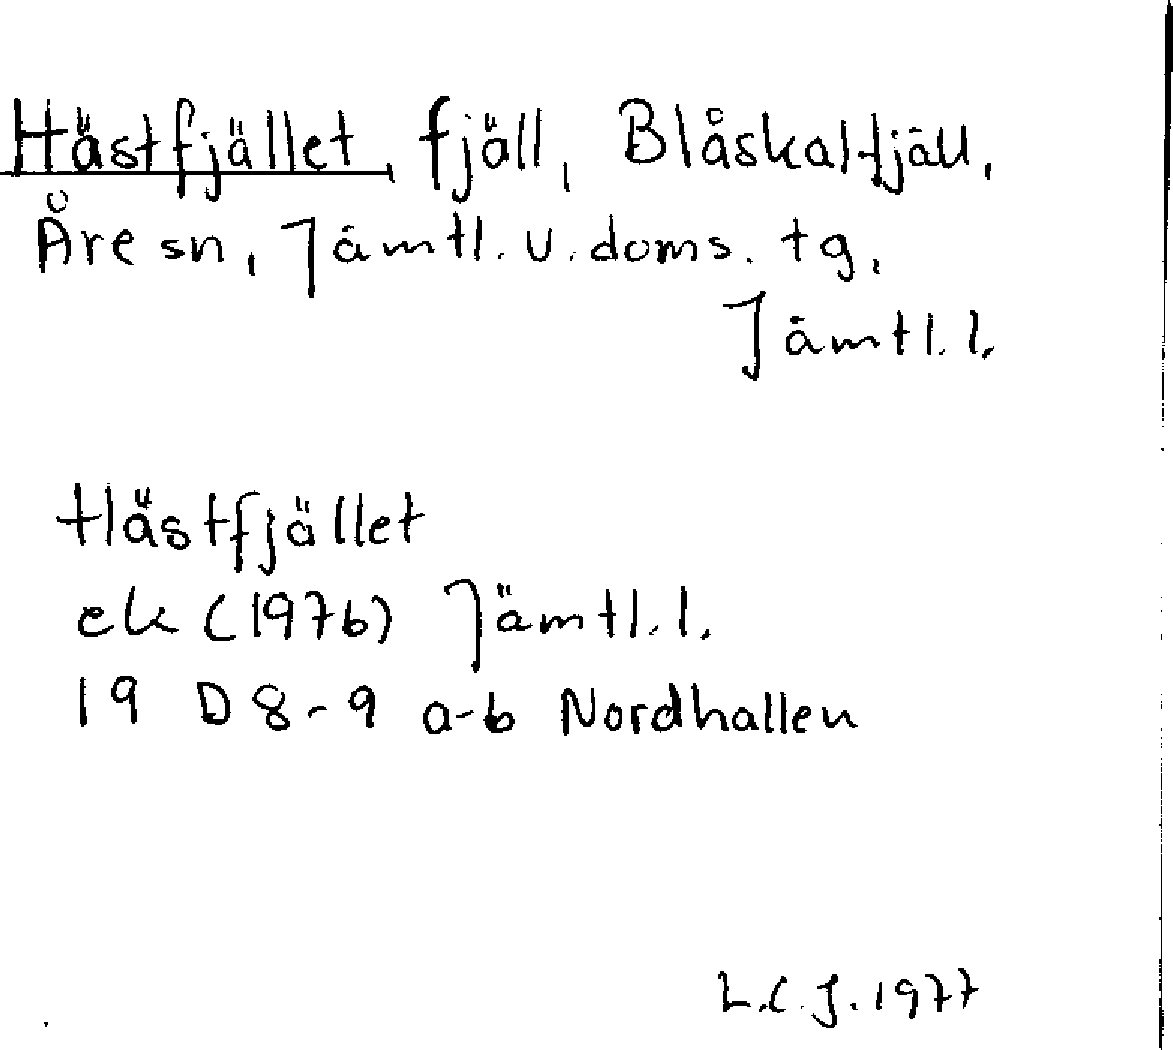 Hästfjället, fjäll, Blåskalfjäll,
Åre sn, Jämtl. v. doms. tg,
Jämtl. l.
Hästfjället
ek (1976) Jämtl. l.
19 D 8-9 a-b Nordhallen
L.C.J. 1977